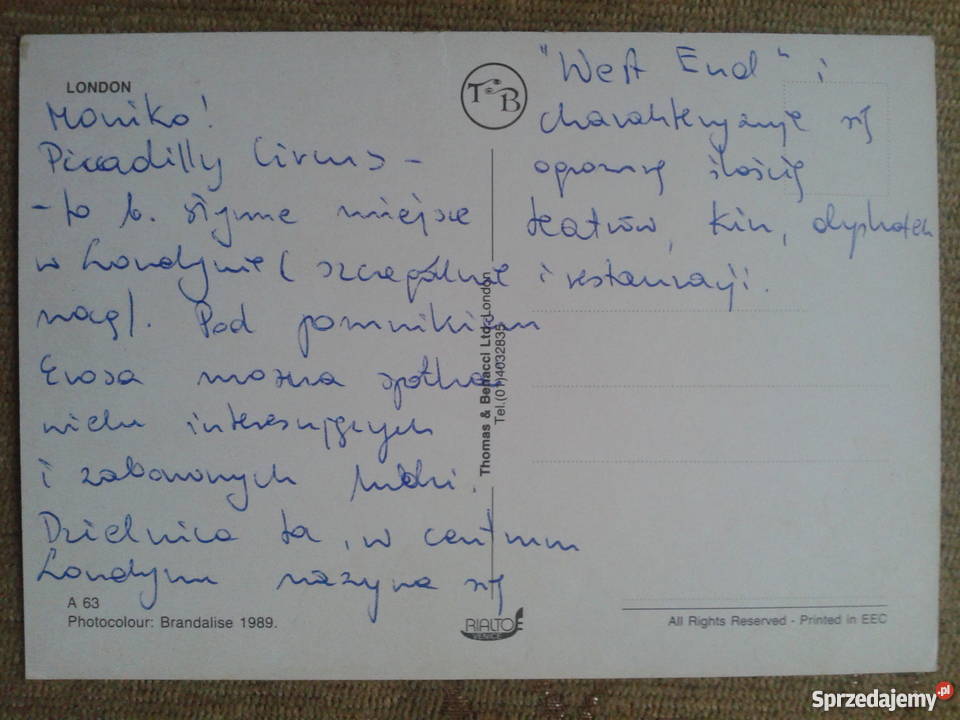 LONDON
Moniko!
Piccadilly Circus -
- to b. słynne miejsce
w Londynie (szczególnie
nocą). Pod pomnikiem
Erosa można spotkać
wielu interesujących
i zabawnych ludzi.
Dzielnica ta, w centrum
Londynu nazywa się
"West End" i
charakteryzuje się
ogromną ilością
teatrów, kin, dyskotek
i restauracji.
TB
Thomas & Benacci Ltd. London
Tel.(01)4032835
A 63
Photocolour: Brandalise 1989.
RIALTO
VENICE
All Rights Reserved - Printed in EEC
Sprzedajemy.pl